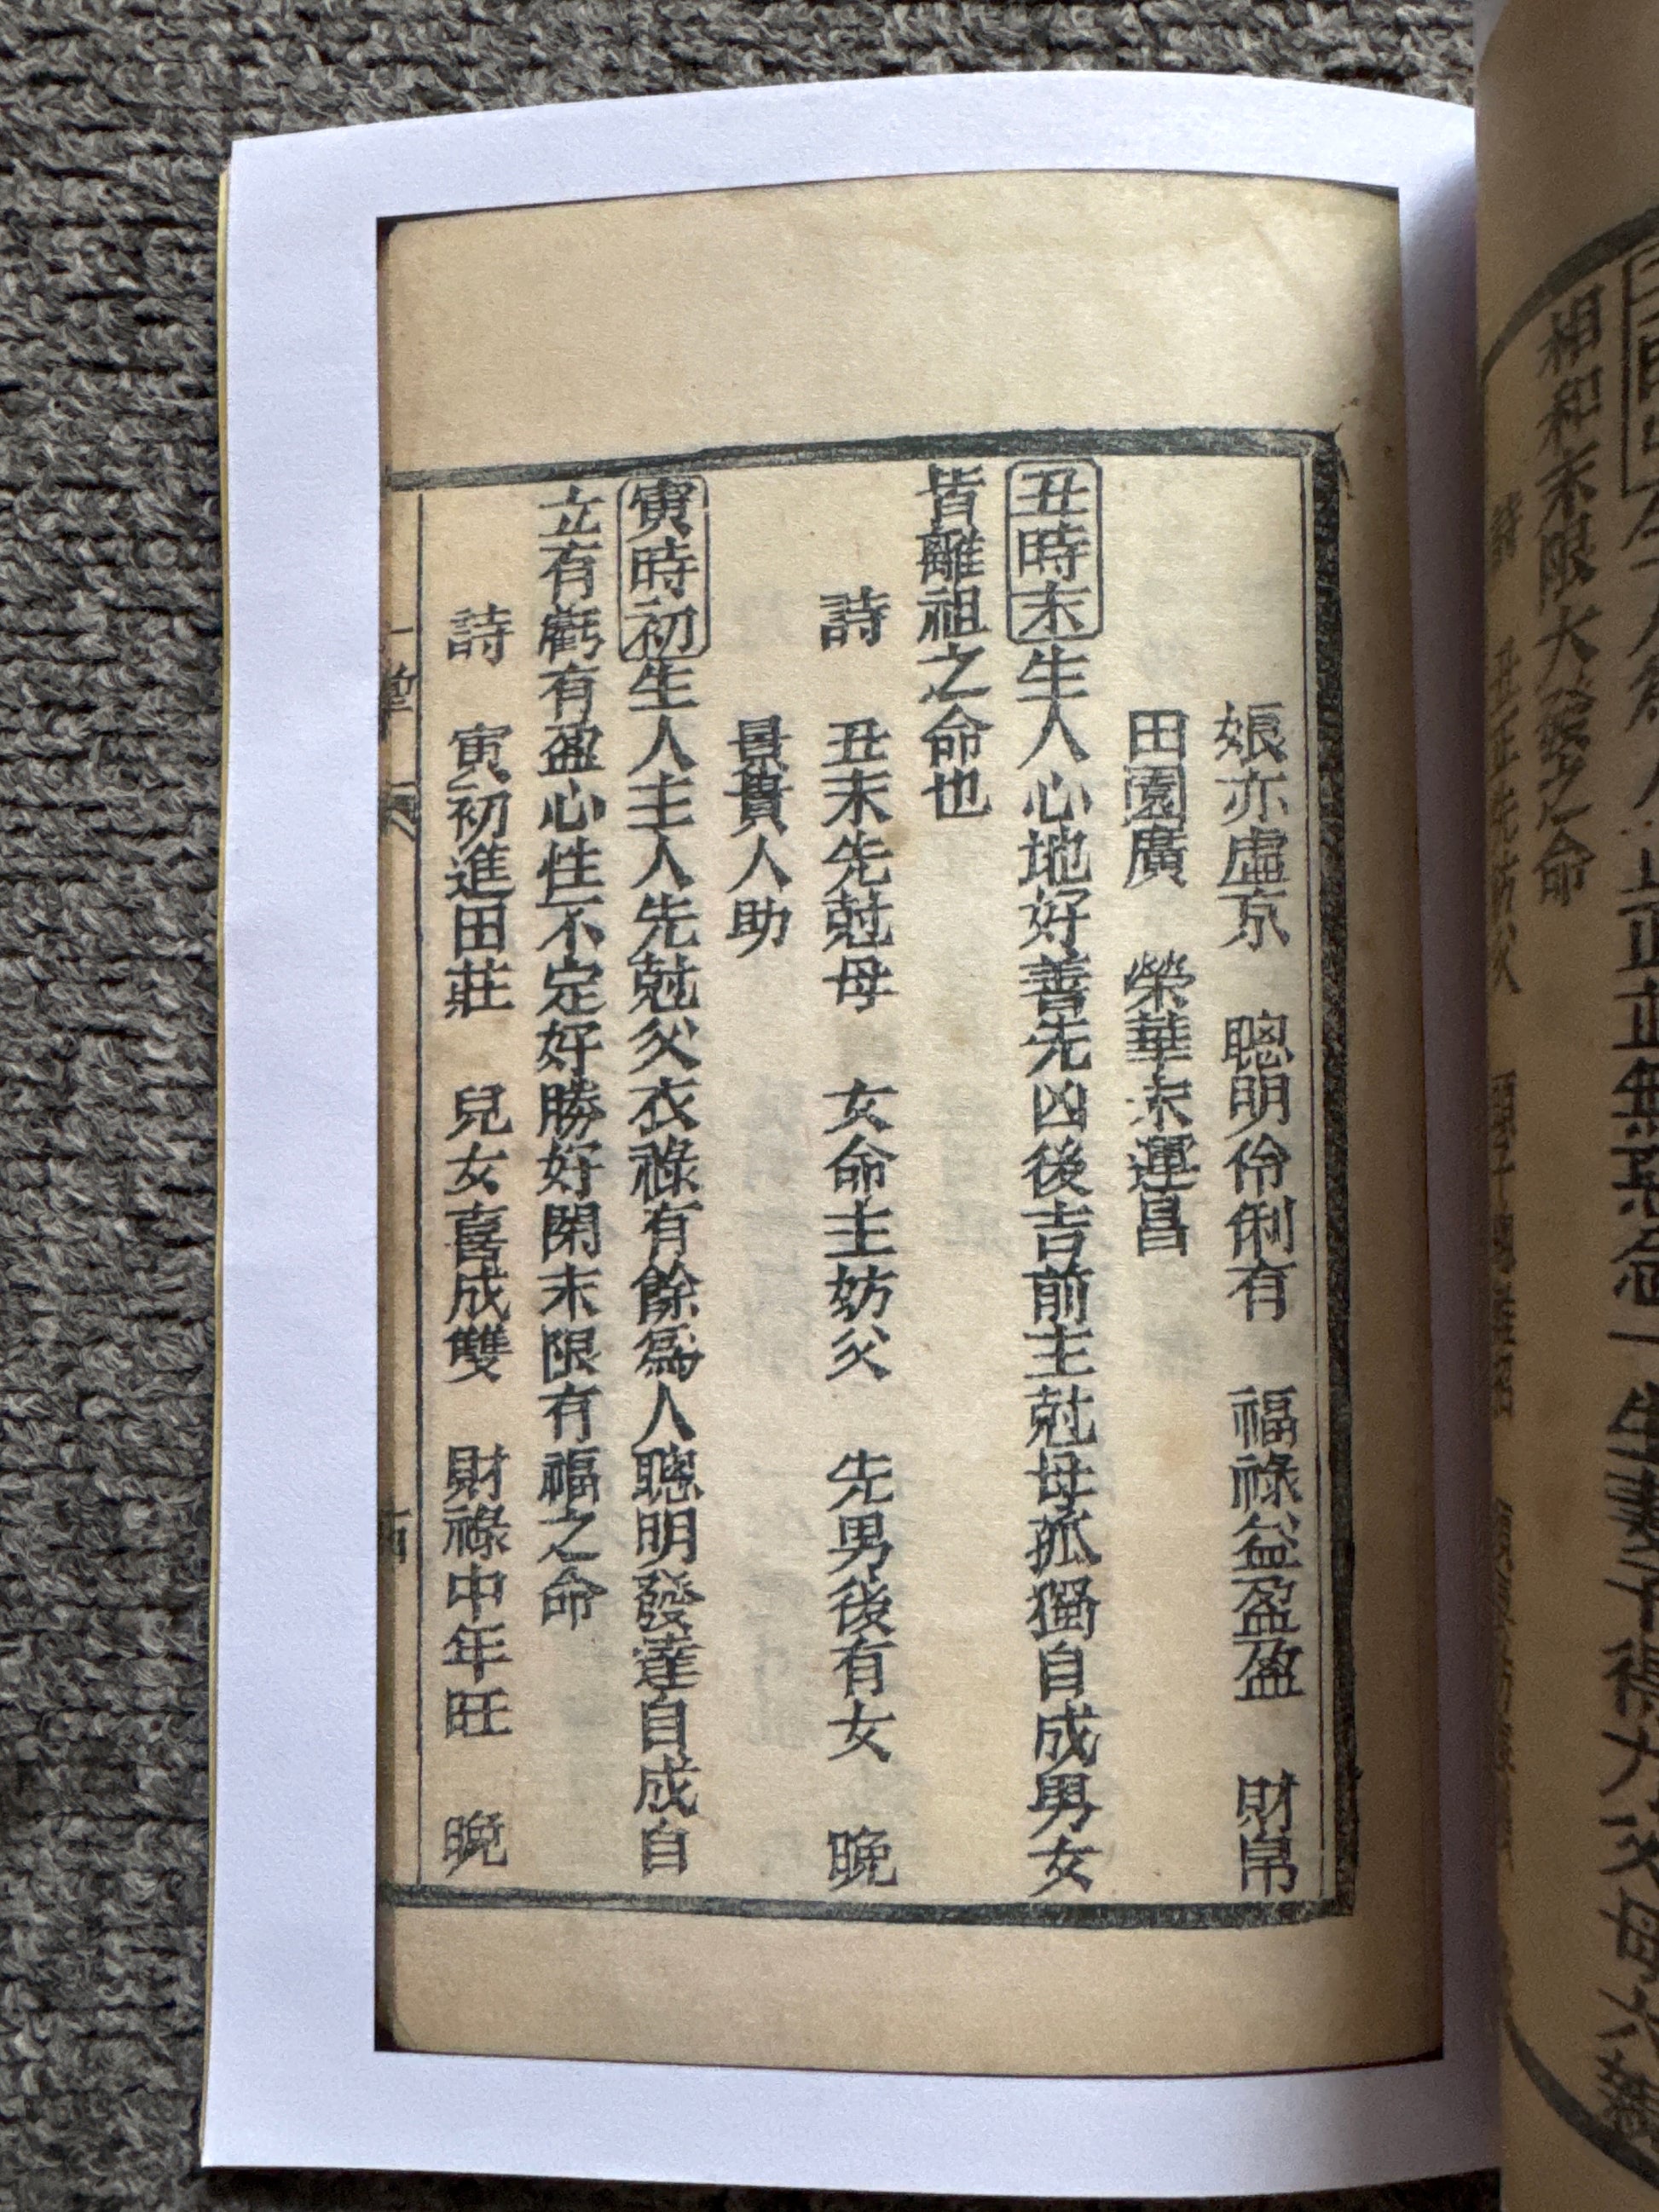 相和末限大發之命
娘亦虛京　聰明伶俐有　福祿益盈盈　財帛
田園廣　榮華末運昌
丑時末生人心地好善先凶後吉前主尅母孤獨自成男女
皆離祖之命也
詩　丑末先尅母　女命主妨父　先男後有女　晚
景貴人助
寅時初生人主人先尅父衣祿有餘爲人聰明發達自成自
立有虧有盈心性不定好勝好閑末限有福之命
詩　寅初進田莊　兒女喜成雙　財祿中年旺　晚